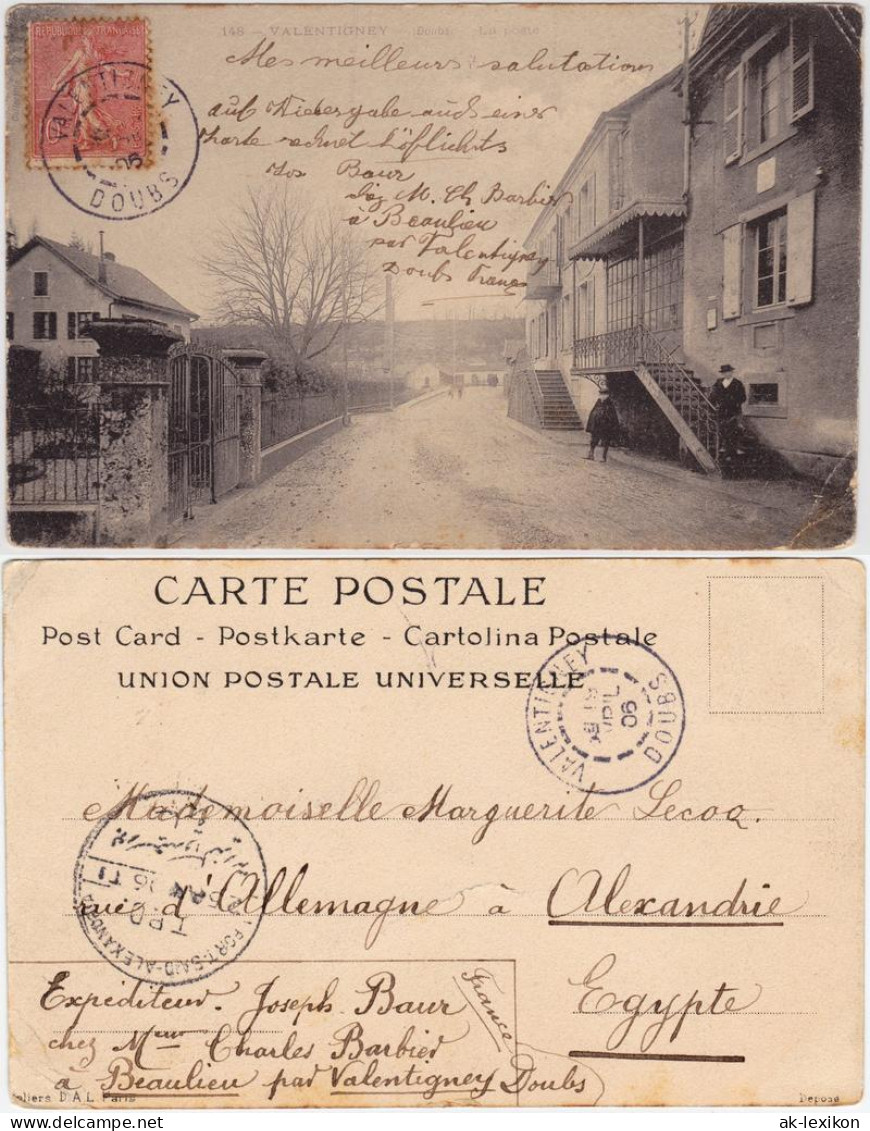 148 - VALENTIGNEY (Doubs) - La poste
REPUBLIQUE FRANÇAISE
VALENTIGNEY
06
DOUBS
Mes meilleurs salutations
auf Wiedergabe auch einer
Karte rechnet höflichts
Jos Baur
chez M. Ch Barbier
à Beaulieu
par Valentigney
Doubs France
CARTE POSTALE
Post Card - Postkarte - Cartolina Postale
UNION POSTALE UNIVERSELLE
VALENTIGNEY
18
AVRIL
06
DOUBS
Mademoiselle Marguerite Lecoq.
rue d'Allemagne à Alexandrie
Egypte
T.P.O
PORT-SAID-ALEXANDRIA
Expéditeur. Joseph Baur
chez Mme Charles Barbier
à Beaulieu par Valentigney Doubs
France
Ateliers D.A.L. Paris
Déposé
ak-lexikon